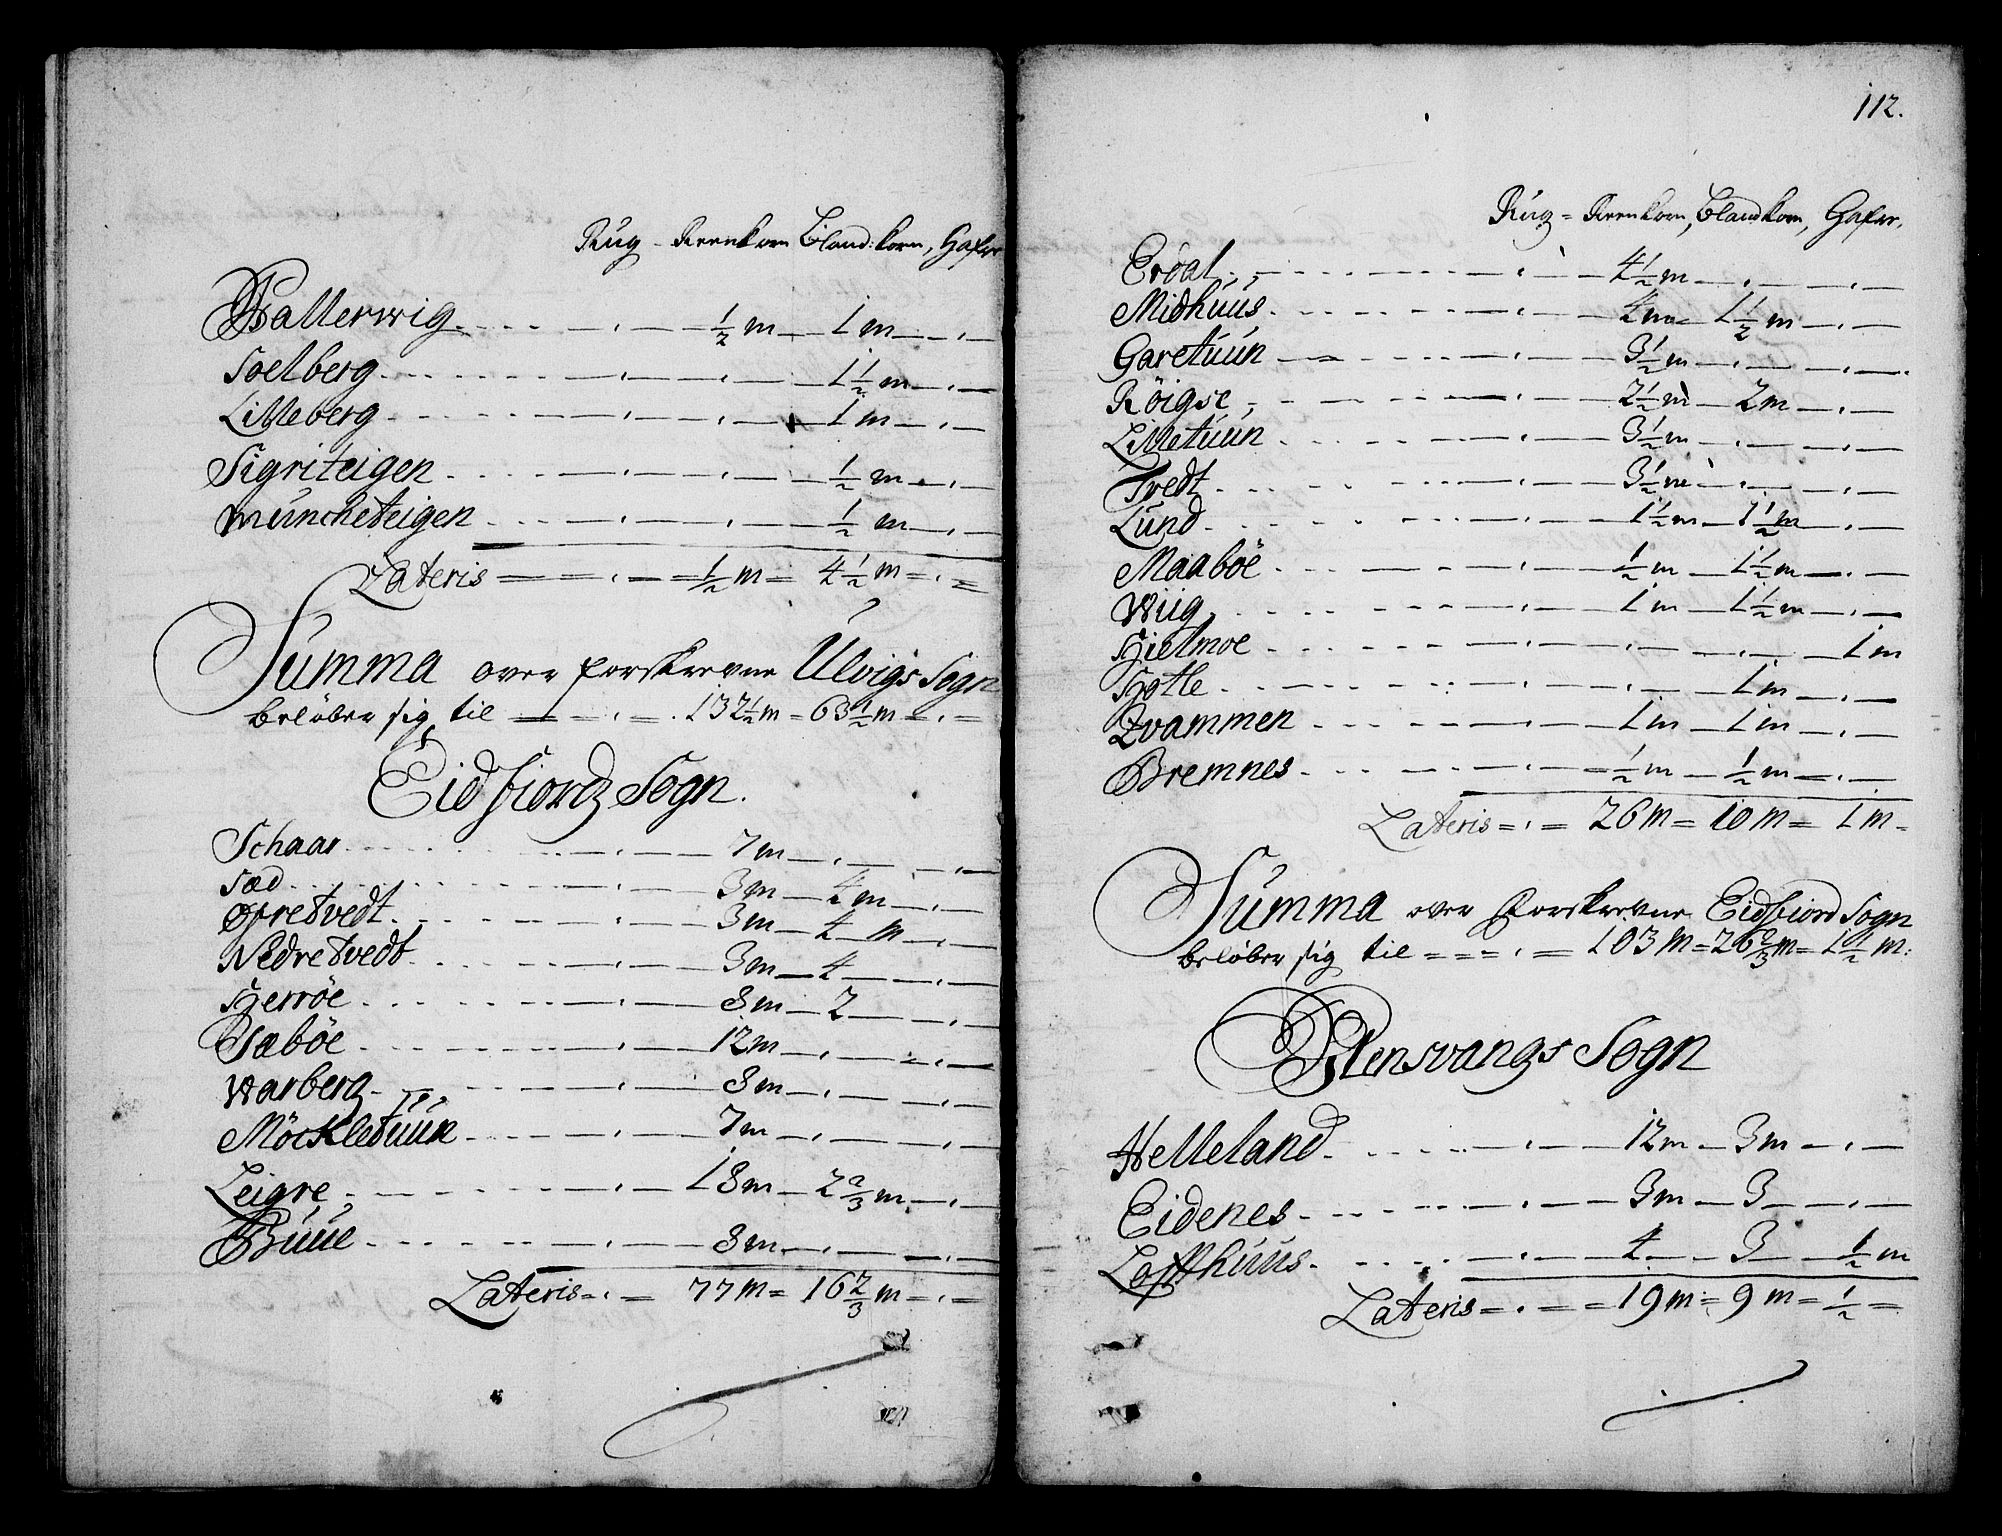 Rug - Reenkorn Bland:korn, Hafre
Hallerwig - - - - — , — ½ m — 1 m — , —
Soelberg - - - - - — , — — , — 1½ m — , —
Lilleberg - - - - - — , — — , — 1 m — , —
Sigriteigen - - - - — , — — , — ½ m — , —
Muncheteigen - - - — , — — , — ½ m — , —
Lateris = = , = ½ m = 4½ m = , =
Summa over forskrevne Ulvigs Sogn
beløber sig til = = , = 132½ m = 63½ m = , =
Eidfiordz Sogn.
Schaar - - - - — , — 7 m — , — — , —
Sæd - - - - — , — 3 m — 4 m — , —
Øfretvedt - - - - — , — 3 m — 4 m — , —
Nedretvedt - - - - — , — 3 m — 4 — , —
Herröe - - - - — , — 8 m — 2 — , —
Sæböe - - - - — , — 12 m — , — — , —
Warberg - - - - — , — 8 m — , — — , —
Möckletuun - - - - — , — 7 m — , — — , —
Leigre - - - - — , — 18 m — 2⅔ m — , —
Buue - - - - — , — 8 m — , — — , —
Lateris = , = 77 m = 16⅔ m = , =
112.
Rug = Reenkorn, Blandkorn, Hafre.
Erdal - - - - — , — 4½ m — , — — , —
Midhuus - - - - — , — 4 m — 1½ m — , —
Garetuun - - - - — , — 3½ m — , — — , —
Röigse - - - - — , — 2½ m — 2 m — , —
Lilletuun - - - - — , — 3½ m — , — — , —
Tvedt - - - - — , — 3½ m — , — — , —
Lund - - - - — , — 1½ m — 1½ m — , —
Maaböe - - - - — , — ½ m — 1½ m — , —
Wiig - - - - — , — 1 m — 1½ m — , —
Hielmoe - - - - — , — — , — — , — 1 m
Hotle - - - - — , — — , — 1 m — , —
Qvammen - - - - — , — 1 m — 1 m — , —
Bremnes - - - - — , — ½ m — ½ m — , —
Lateris = , = 26 m = 10 m = 1 m =
Summa over forskrevne Eidfiord Sogn
beløber sig til = = = , = 103 m = 26⅔ m = 1½ m :
Ullensvangs Sogn
Helleland - - - - — , — 12 m — 3 m — , —
Eidenes - - - - — , — 3 m — 3 — , —
Loffthuus - - - - — , — 4 — 3 — ½ m
Lateris = , = = 19 m = 9 m = ½ =